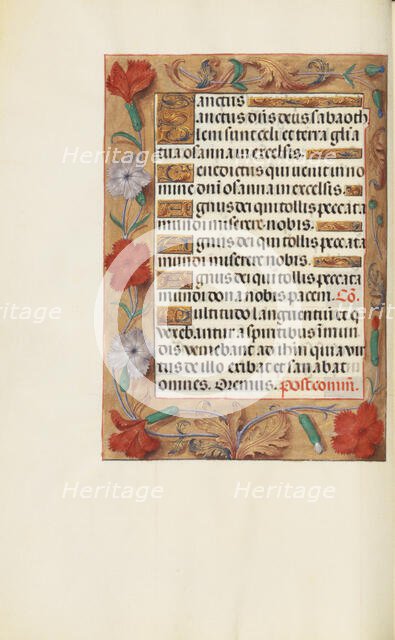 Sanctus
Sanctus dn̄s deus sabaoth
leni sunt celi et terra gl̄ia
tua osanna in excelsis.
Benedictus qui venit in no
mine dn̄i osanna in excelsis.
Agnus dei qui tollis peccata
mundi miserere nobis.
Agnus dei qui tollis peccata
mundi miserere nobis.
Agnus dei qui tollis peccata
mundi dona nobis pacem. Cō.
Multitudo languentiū et q̄
vexebantur a spiritibus īmun
dis veniebant ad ihm̄ quia vir
tus de illo exibat et sanabat
omnes. Oremus. Postcomūn̄.
Heritage
Heritage
Heritage
Heritage
Heritage
Heritage
Heritage
Heritage
Heritage